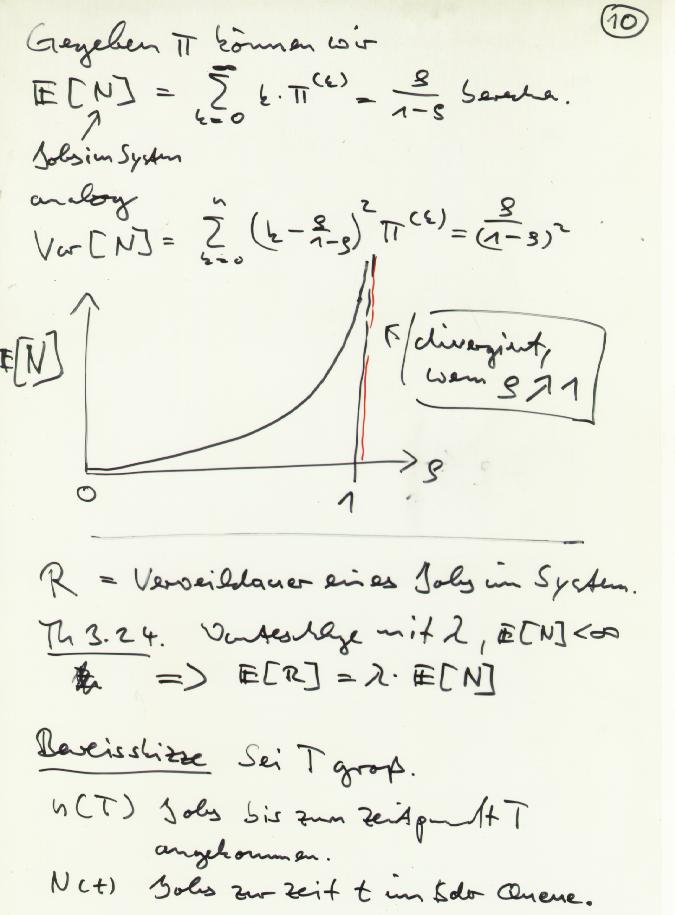 10
Gegeben π können wir
E[N] = ∞∑k=0 k·π^(k) = ρ/(1-ρ) berechn.
Jobs im System
analog
Var[N] = n∑k=0 (k - ρ/(1-ρ))² π^(k) = ρ/(1-ρ)²
E[N]
divergiert,
wenn ρ ↗ 1
0
1
ρ
R = Verweildauer eines Jobs im System.
Th 3.24. mit λ, E[N]<∞
=> E[R] = λ· E[N]
Beweisskizze Sei T groß.
n(T) Jobs bis zum Zeitpunkt T
angekommen.
N(t) Jobs zur Zeit t in der Queue.